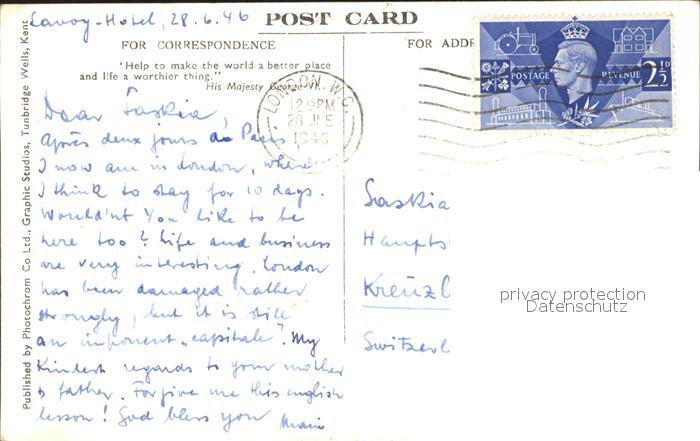 Savoy-Hotel, 28.6.46
POST CARD
FOR CORRESPONDENCE
FOR ADDR
"Help to make the world a better place
and life a worthier thing."
His Majesty George VI.
POSTAGE REVENUE 2½D
LONDON. W.C.
12 15 PM
28 JNE
1946
Dear Saskia,
Après deux jours à Paris
I now am in London, where
I think to stay for 10 days.
Would'nt you like to be
here too? Life and business
are very interesting. London
has been damaged rather
strongly, but it is still
an imponent „capitale". My
kindest regards to your mother
& father. Forgive me this english
lesson! God bless you
Saskia
Haupts
Kreuzl
Switzerl
privacy protection
Datenschutz
Published by Photochrom Co Ltd., Graphic Studios, Tunbridge Wells, Kent